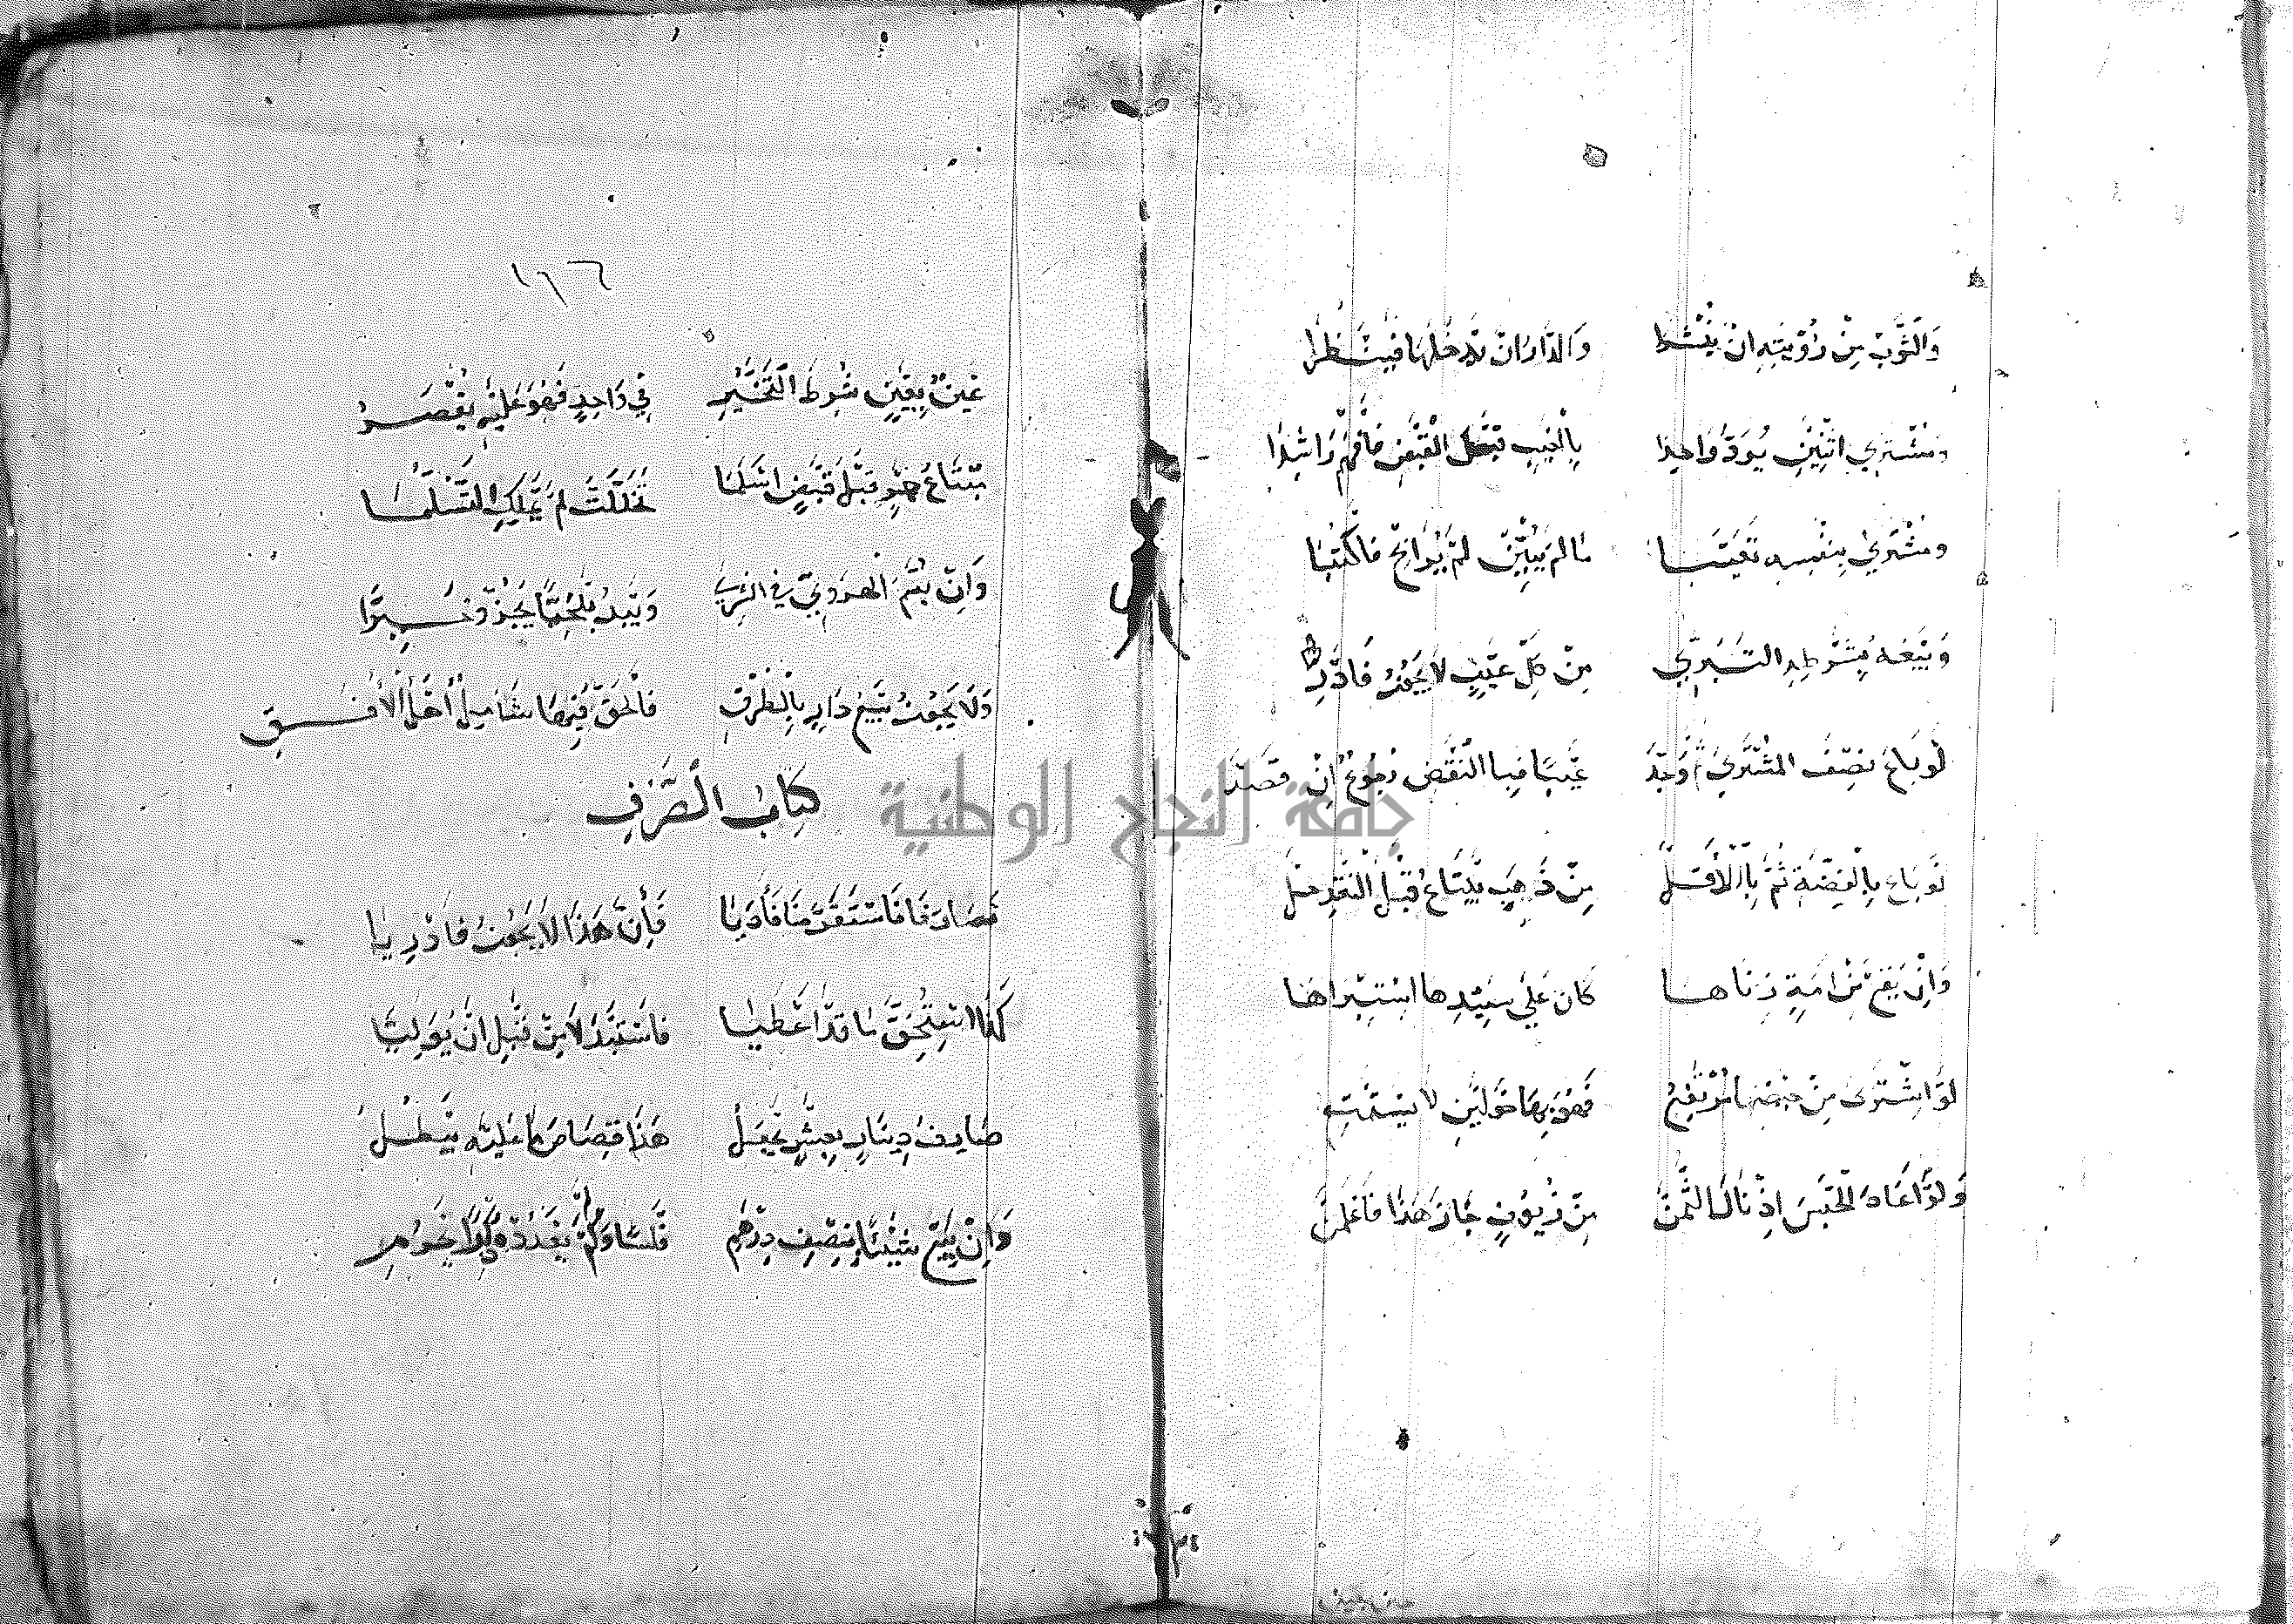 وَالثَّوْبَ مِنْ رُؤْيَتِهِ اَنْ يُنْشَرَا وَالدَّارَ اَنْ يَدْخُلَهَا فَيَنْظُرَا
وَمُشْتَرِي اثْنَيْنِ يَرُدُّ وَاحِدَا بِالْعَيْبِ قَبْلَ الْقَبْضِ فَافْهَمْ رَاشِدَا
وَمُشْتَرِي بِنَفْسِهِ تَعَيَّبَا مَا لَمْ يُبَيِّنْ لَمْ يُرَابِحْ فَاكْتُبَا
وَبَيْعُهُ بِشَرْطِهِ التَّبَرِّي مِنْ كُلِّ عَيْبٍ لَا يَجُوزُ فَادْرِ
لَوْ بَاعَ نِصْفَ الْمُشْتَرَى وَوَجَدَ عَيْبًا فَبِالنَّقْضِ رُجُوعٌ اِنْ قَصَدَ
لَوْ بَاعَ بِالْفِضَّةِ ثُمَّ بِالْاَقَلْ مِنْ ذَهَبٍ يَبْتَاعُ قَبْلَ النَّقْدِ حَلْ
وَاِنْ يَقَعْ مِنْ اَمَةٍ زِنَاهَا كَانَ عَلَى سَيِّدِهَا اسْتِبْرَاهَا
لَوِ اشْتَرَى مِنْ حَيْضُهَا مُرْتَفِعُ فَهْوَ بِهَا حَوْلَيْنِ لَا يَسْتَمْتِعُ
وَلَوْ اَعَادَ الْحَبْسَ اِذْ نَالَ الثَّمَنْ مِنْ زُيُوفٍ جَازَ هَذَا فَاعْلَمَنْ
١١٦
عَيْنٌ بِعَيْنَيْنِ شَرْطُ التَّخَيُّرِ فِي وَاحِدٍ فَهْوَ عَلَيْهِ يُقْصَرُ
مُبْتَاعُ خَمْرٍ قَبْلَ قَبْضٍ اَسْلَمَا تَخَلَّلَتْ لَمْ يَمْلِكِ التَّسَلُّمَا
وَاِنْ الْهَرَوِيّ فِي
وَلَا يَجُوزُ بَيْعُ دَارٍ بِالطُّرُقْ فَالْحَقُّ فِيهَا شَامِلٌ اَهْلَ الْاُفُقْ
كِتَابُ الصَّرْفِ
تَصَارَفَا فَاسْتَقْرَضَا فَاَدَّيَا فَاِنَّ هَذَا لَا يَجُوزُ فَادْرِيَا
كَذَا لَا اسْتُحِقَّ مَا قَدْ اَعْطَيَا فَاسْتَبْدَلَا مِنْ قَبْلِ اَنْ يُوَلِّيَا
صَارَفَ دِينَارٍ بِعَشْرٍ جَعَلْ هَذَا قِصَاصَ مَا عَلَيْهِ يَبْطُلْ
وَاِنْ يَبِعْ شَيْئًا بِنِصْفِ دِرْهَمِ فَلْسًا وَلَمْ يُعَدِّدْهُ
جامعة النجاح الوطنية